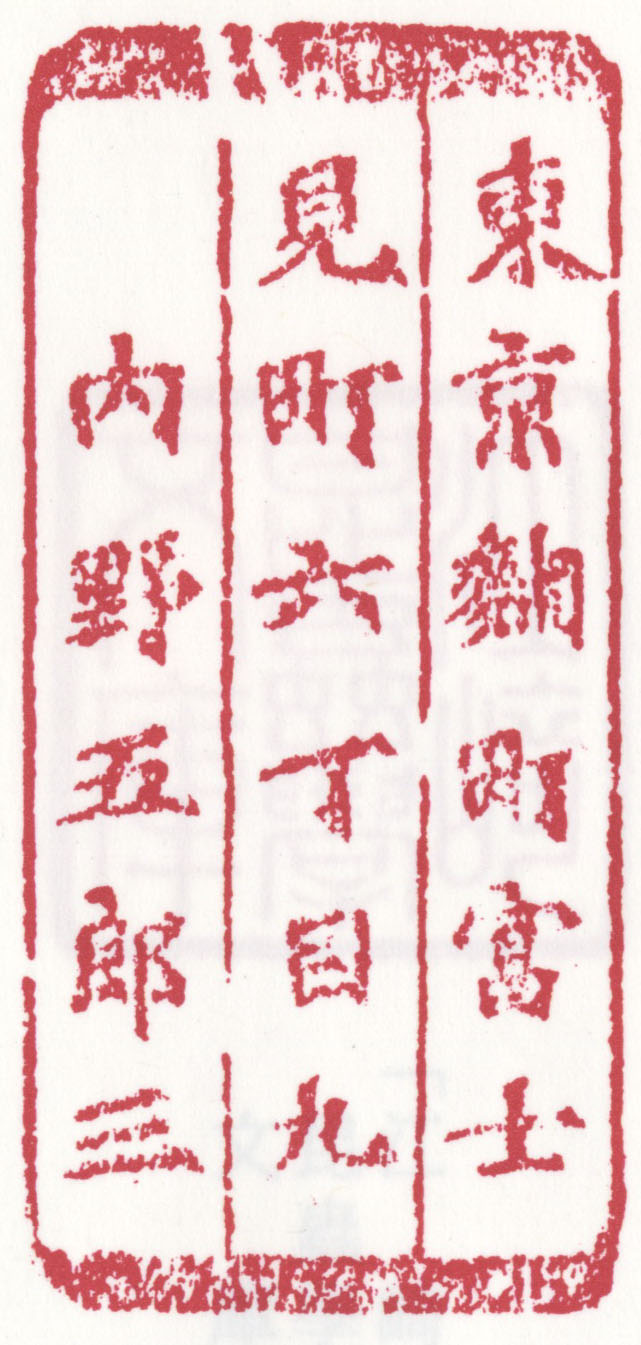 東京麹町富士
見町六丁目九
内野五郎三